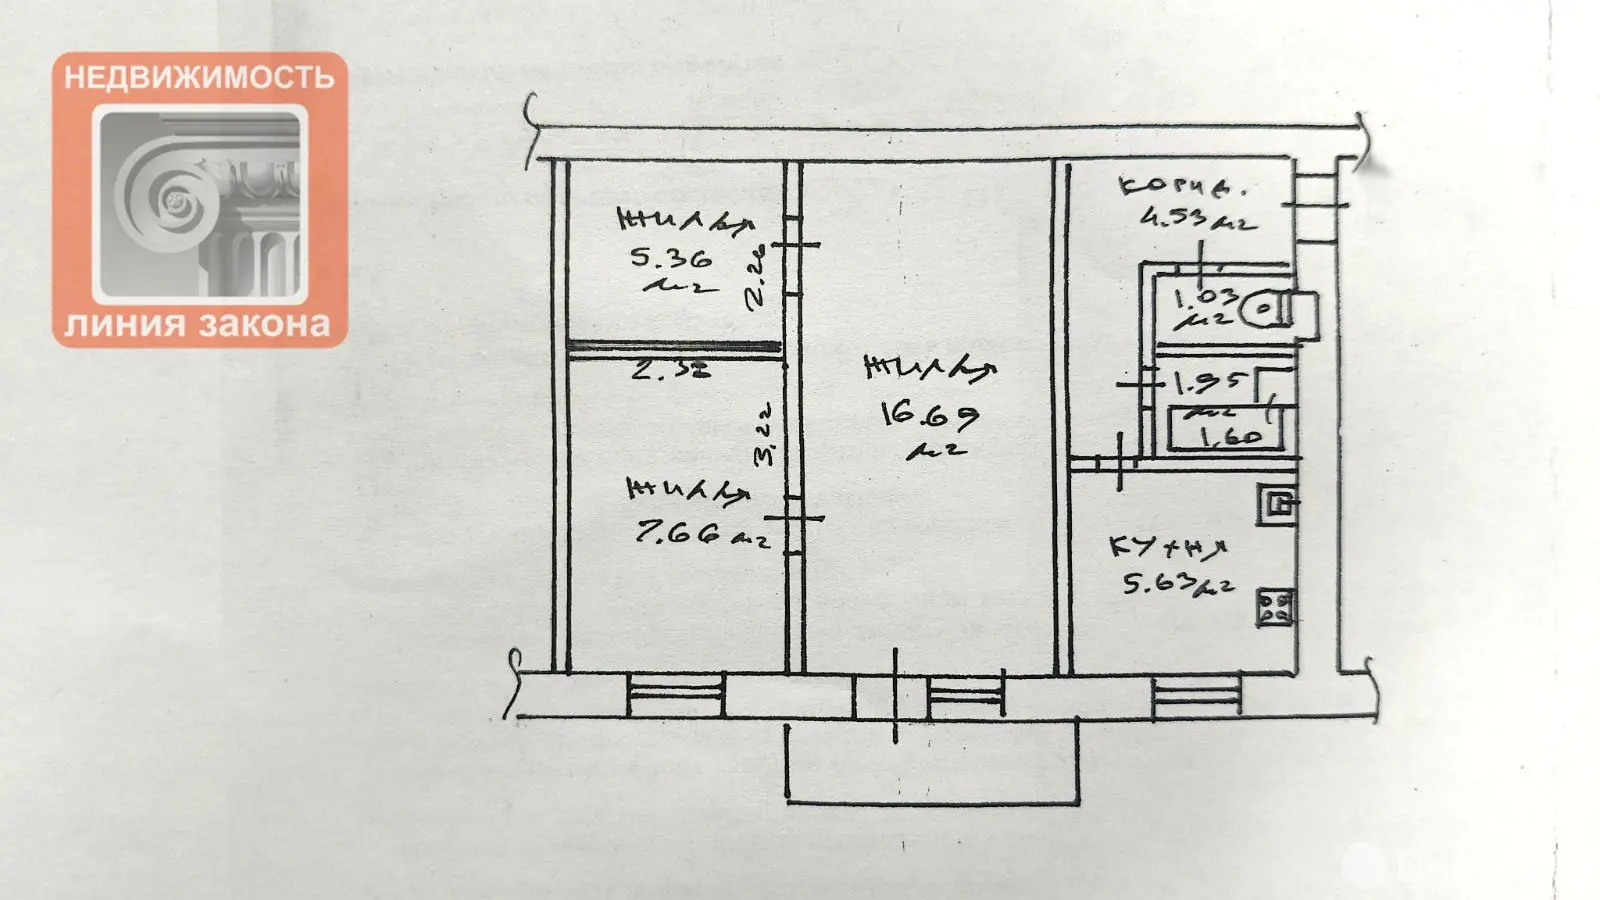 НЕДВИЖИМОСТЬ
линия закона
жилая
5.36
м2
2.26
2.38
3.22
жилая
7.66 м2
жилая
16.69
м2
корид.
4.53 м2
1.03
м2
1.95
м2
1.60
кухня
5.63 м2